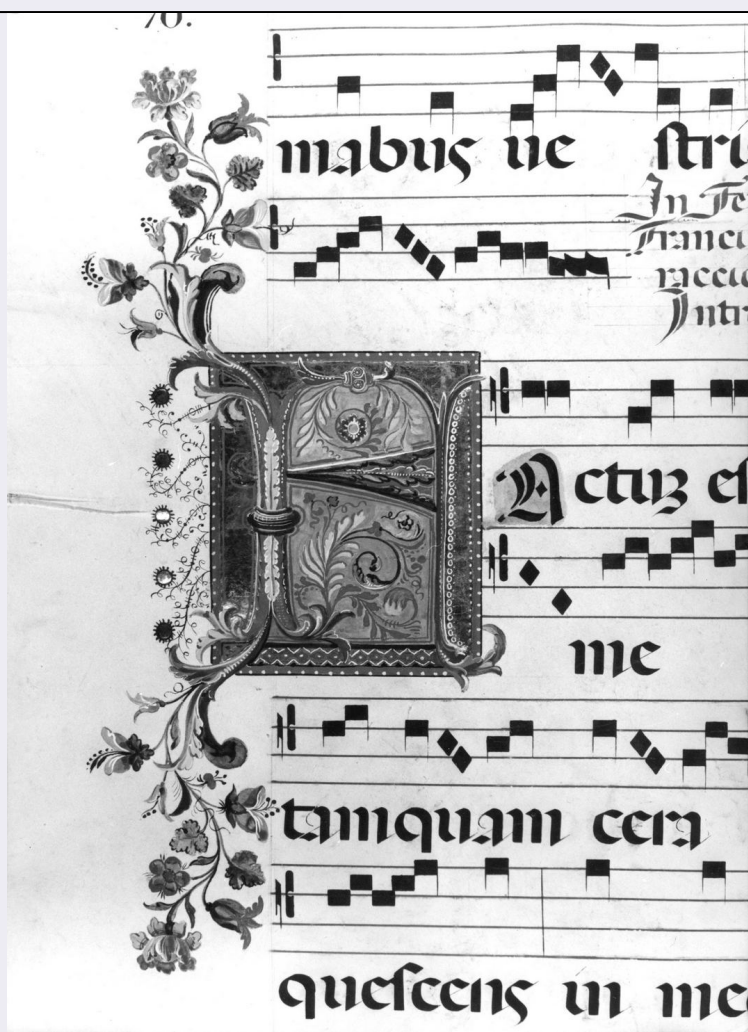 70.
mabus ve stri
In Fe
Franci
Intr
FActuz es
me
tamquam cera
quescens in me